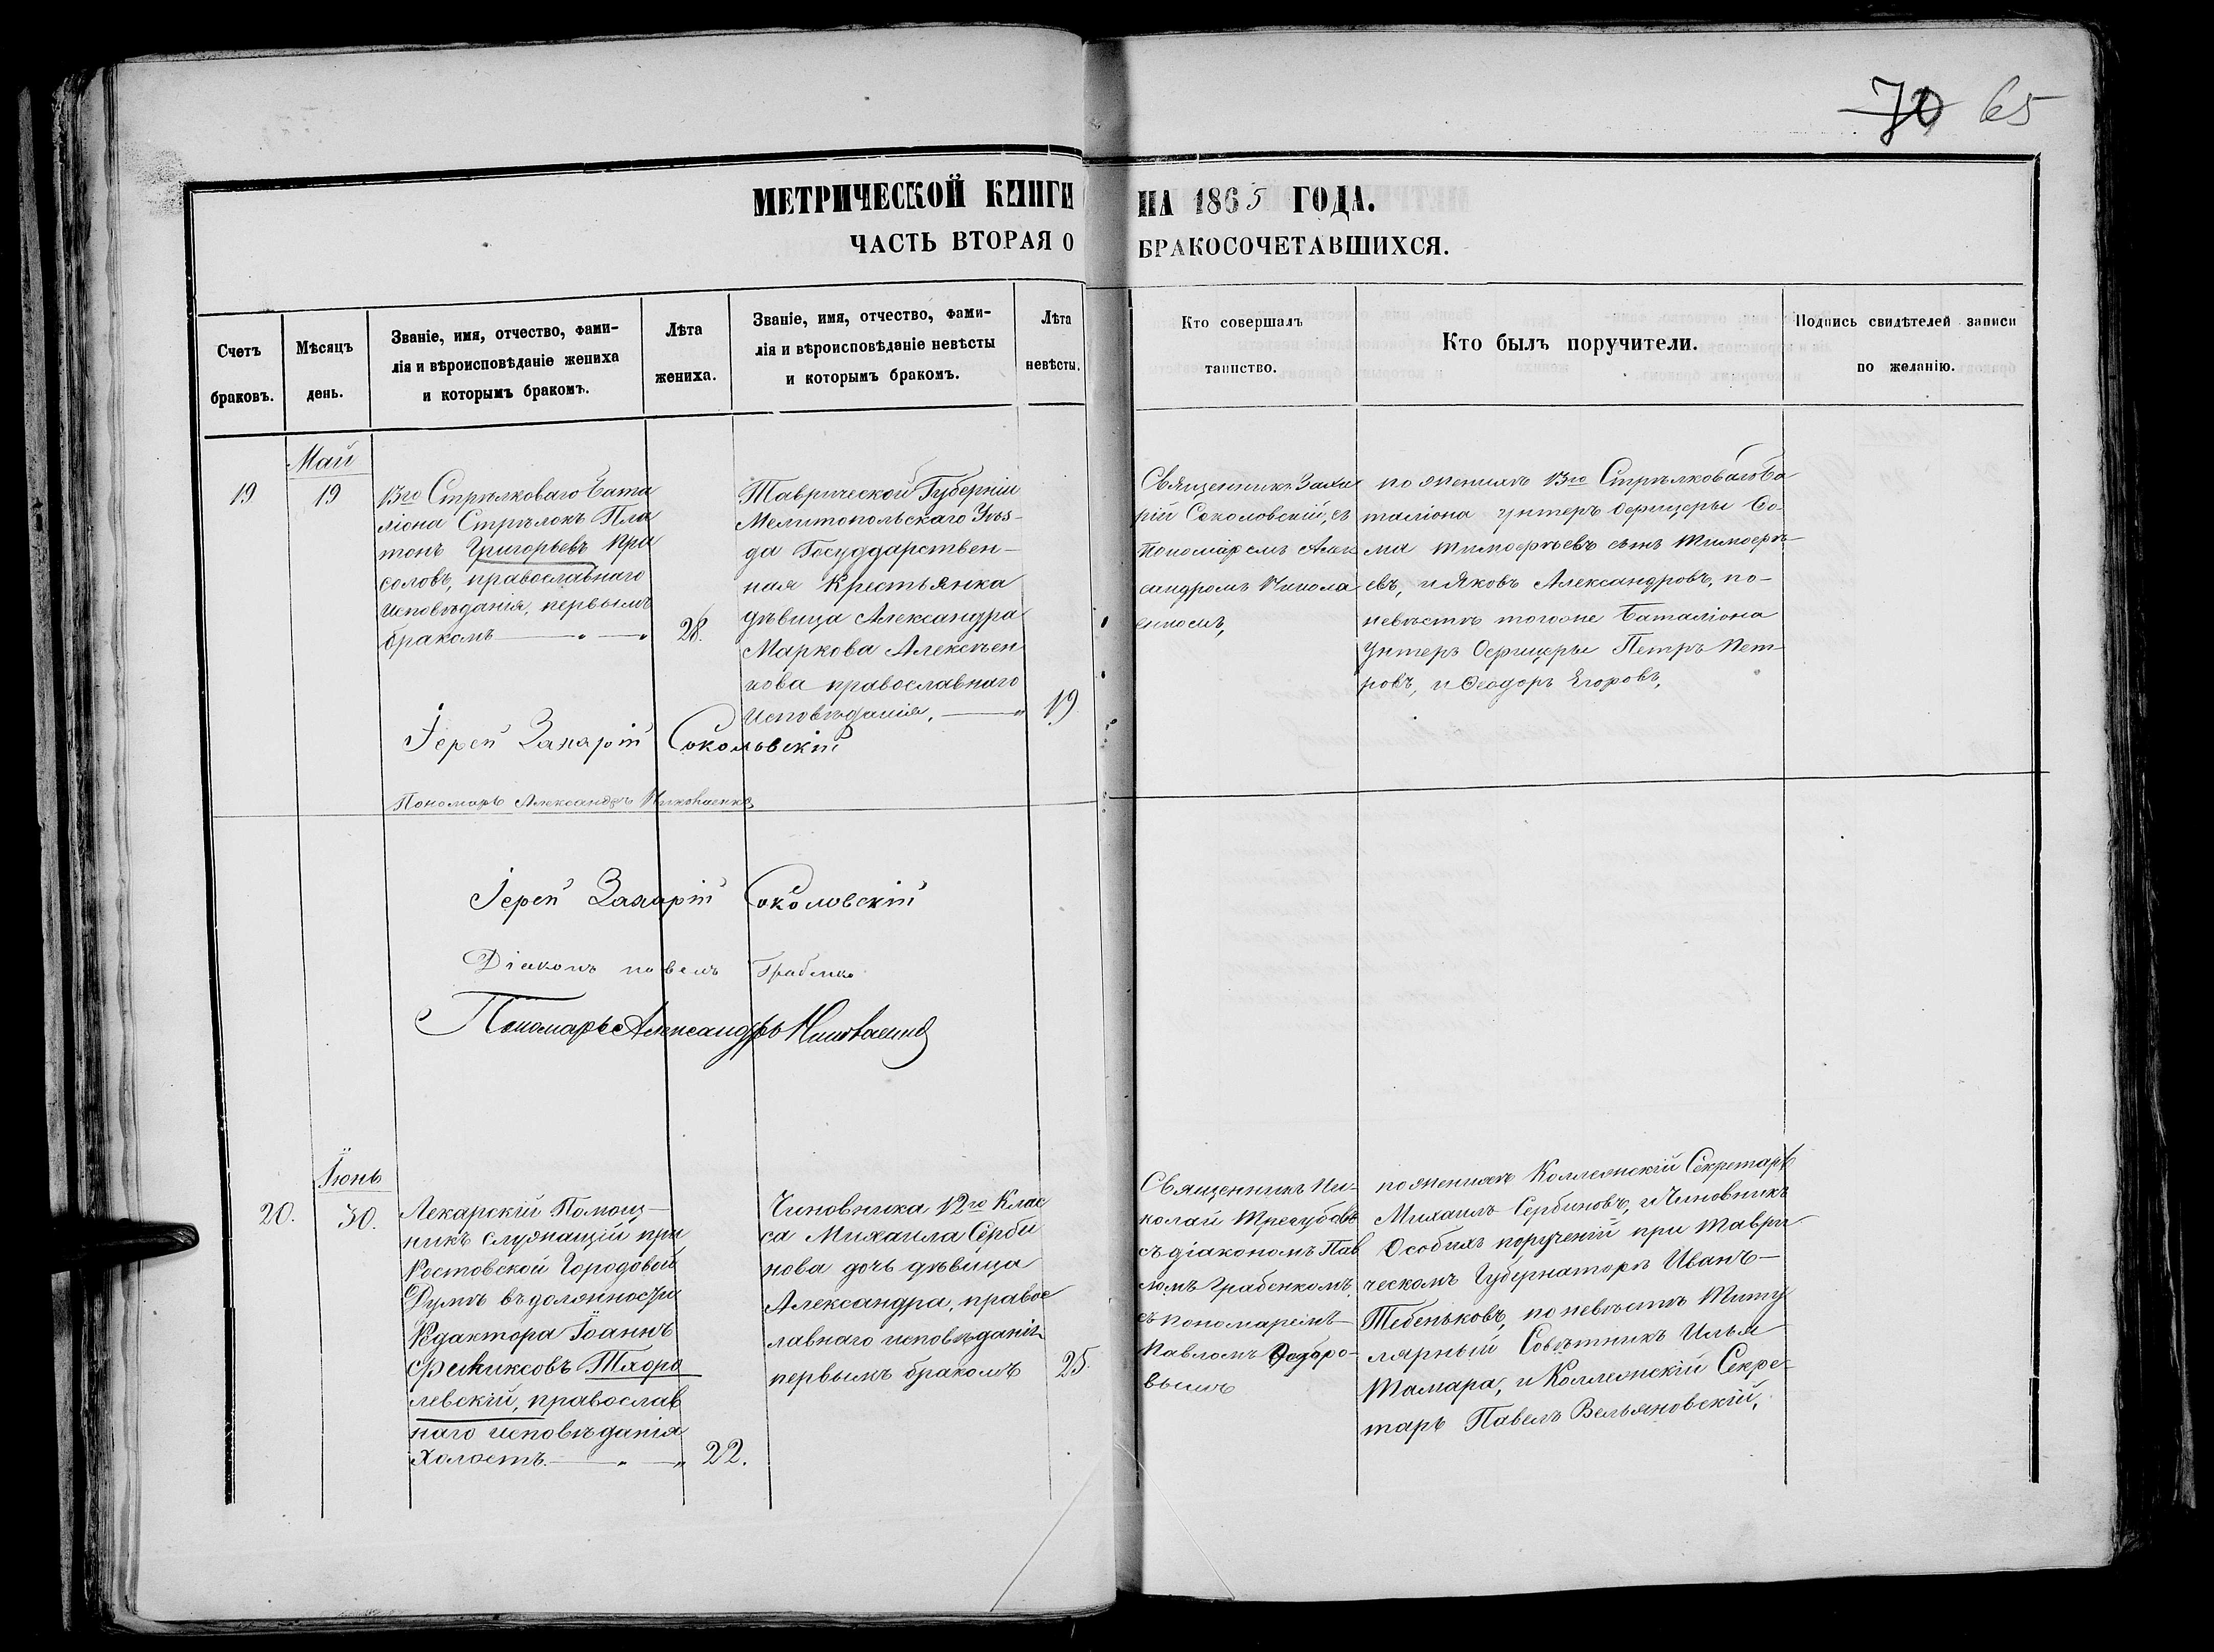 70 65
МЕТРИЧЕСКОЙ КНИГИ НА 1865 ГОДА.
ЧАСТЬ ВТОРАЯ О БРАКОСОЧЕТАВШИХСЯ.
Счетъ
браковъ.
Мѣсяцъ
день.
Званіе, имя, отчество, фами-
лія и вѣроисповѣданіе жениха
и которымъ бракомъ.
Лѣта
жениха.
Званіе, имя, отчество, фами-
лія и вѣроисповѣданіе невѣсты
и которымъ бракомъ.
Лѣта
невѣсты.
Кто совершалъ
таинство.
Кто былъ поручители.
Подпись свидѣтелей записи
по желанію.
Май
19
19
13го Стрѣлковаго Бата
ліона Стрѣлокъ Пла
тонъ Григорьевъ При
соловъ, православнаго
исповѣданія, первымъ
бракомъ
28.
Таврической Губерніи
Мелитопольскаго Уѣз-
да Госуддарствен-
ная Крестьянка
дѣвица Александра
Маркова Алексѣен
кова православнаго
исповѣданія,
19
Священникъ Заха
рій Соколовскій, съ
Пономаремъ Алек
сандромъ Никола
енкомъ,
по женихѣ 13го Стрѣлковаго Ба
таліона унтеръ Офицеры Ѳо-
ма Тимофѣевъ сынъ Тимофѣ-
евъ, и Яковъ Александровъ, по-
невѣстѣ того же Баталіона
Унтеръ Офицеры Петръ Пет-
ровъ, и Ѳеодоръ Егоровъ,
Іерей Захарій Соколовскій
Пономарь Александръ Николаенко
Іерей Захарій Соколовскій
Діаконъ Павелъ Грабенко
Пономарь Александръ Николаенко
Іюнь
20.
30.
Лекарскій Помощ-
никъ служащій при
Ростовской Городовой
Думѣ въ должности
Редактора Іоаннъ
Фениксовъ Тхоро
левскій, православ
наго исповѣданія
Холостъ.
22.
Чиновника 12го Клас
са Михаила Серби
нова дочь дѣвица
Александра, правос
лавнаго исповѣданія
первымъ бракомъ
25.
Священникъ Ни-
колай Трегубовъ
съ діакономъ Пав
ломъ Грабенкомъ,
съ пономаремъ
Павломъ Ѳедоро-
вымъ
по женихѣ Коллежскій Секретарь
Михаилъ Сербиновъ, и Чиновникъ
Особыхъ порученій при Таври
ческомъ Губернаторѣ Иванъ-
Тебеньковъ, по невѣстѣ Титу
лярный Совѣтникъ Илья
Тамара, и Коллежскій Секре-
тарь Павелъ Вельяновскій,